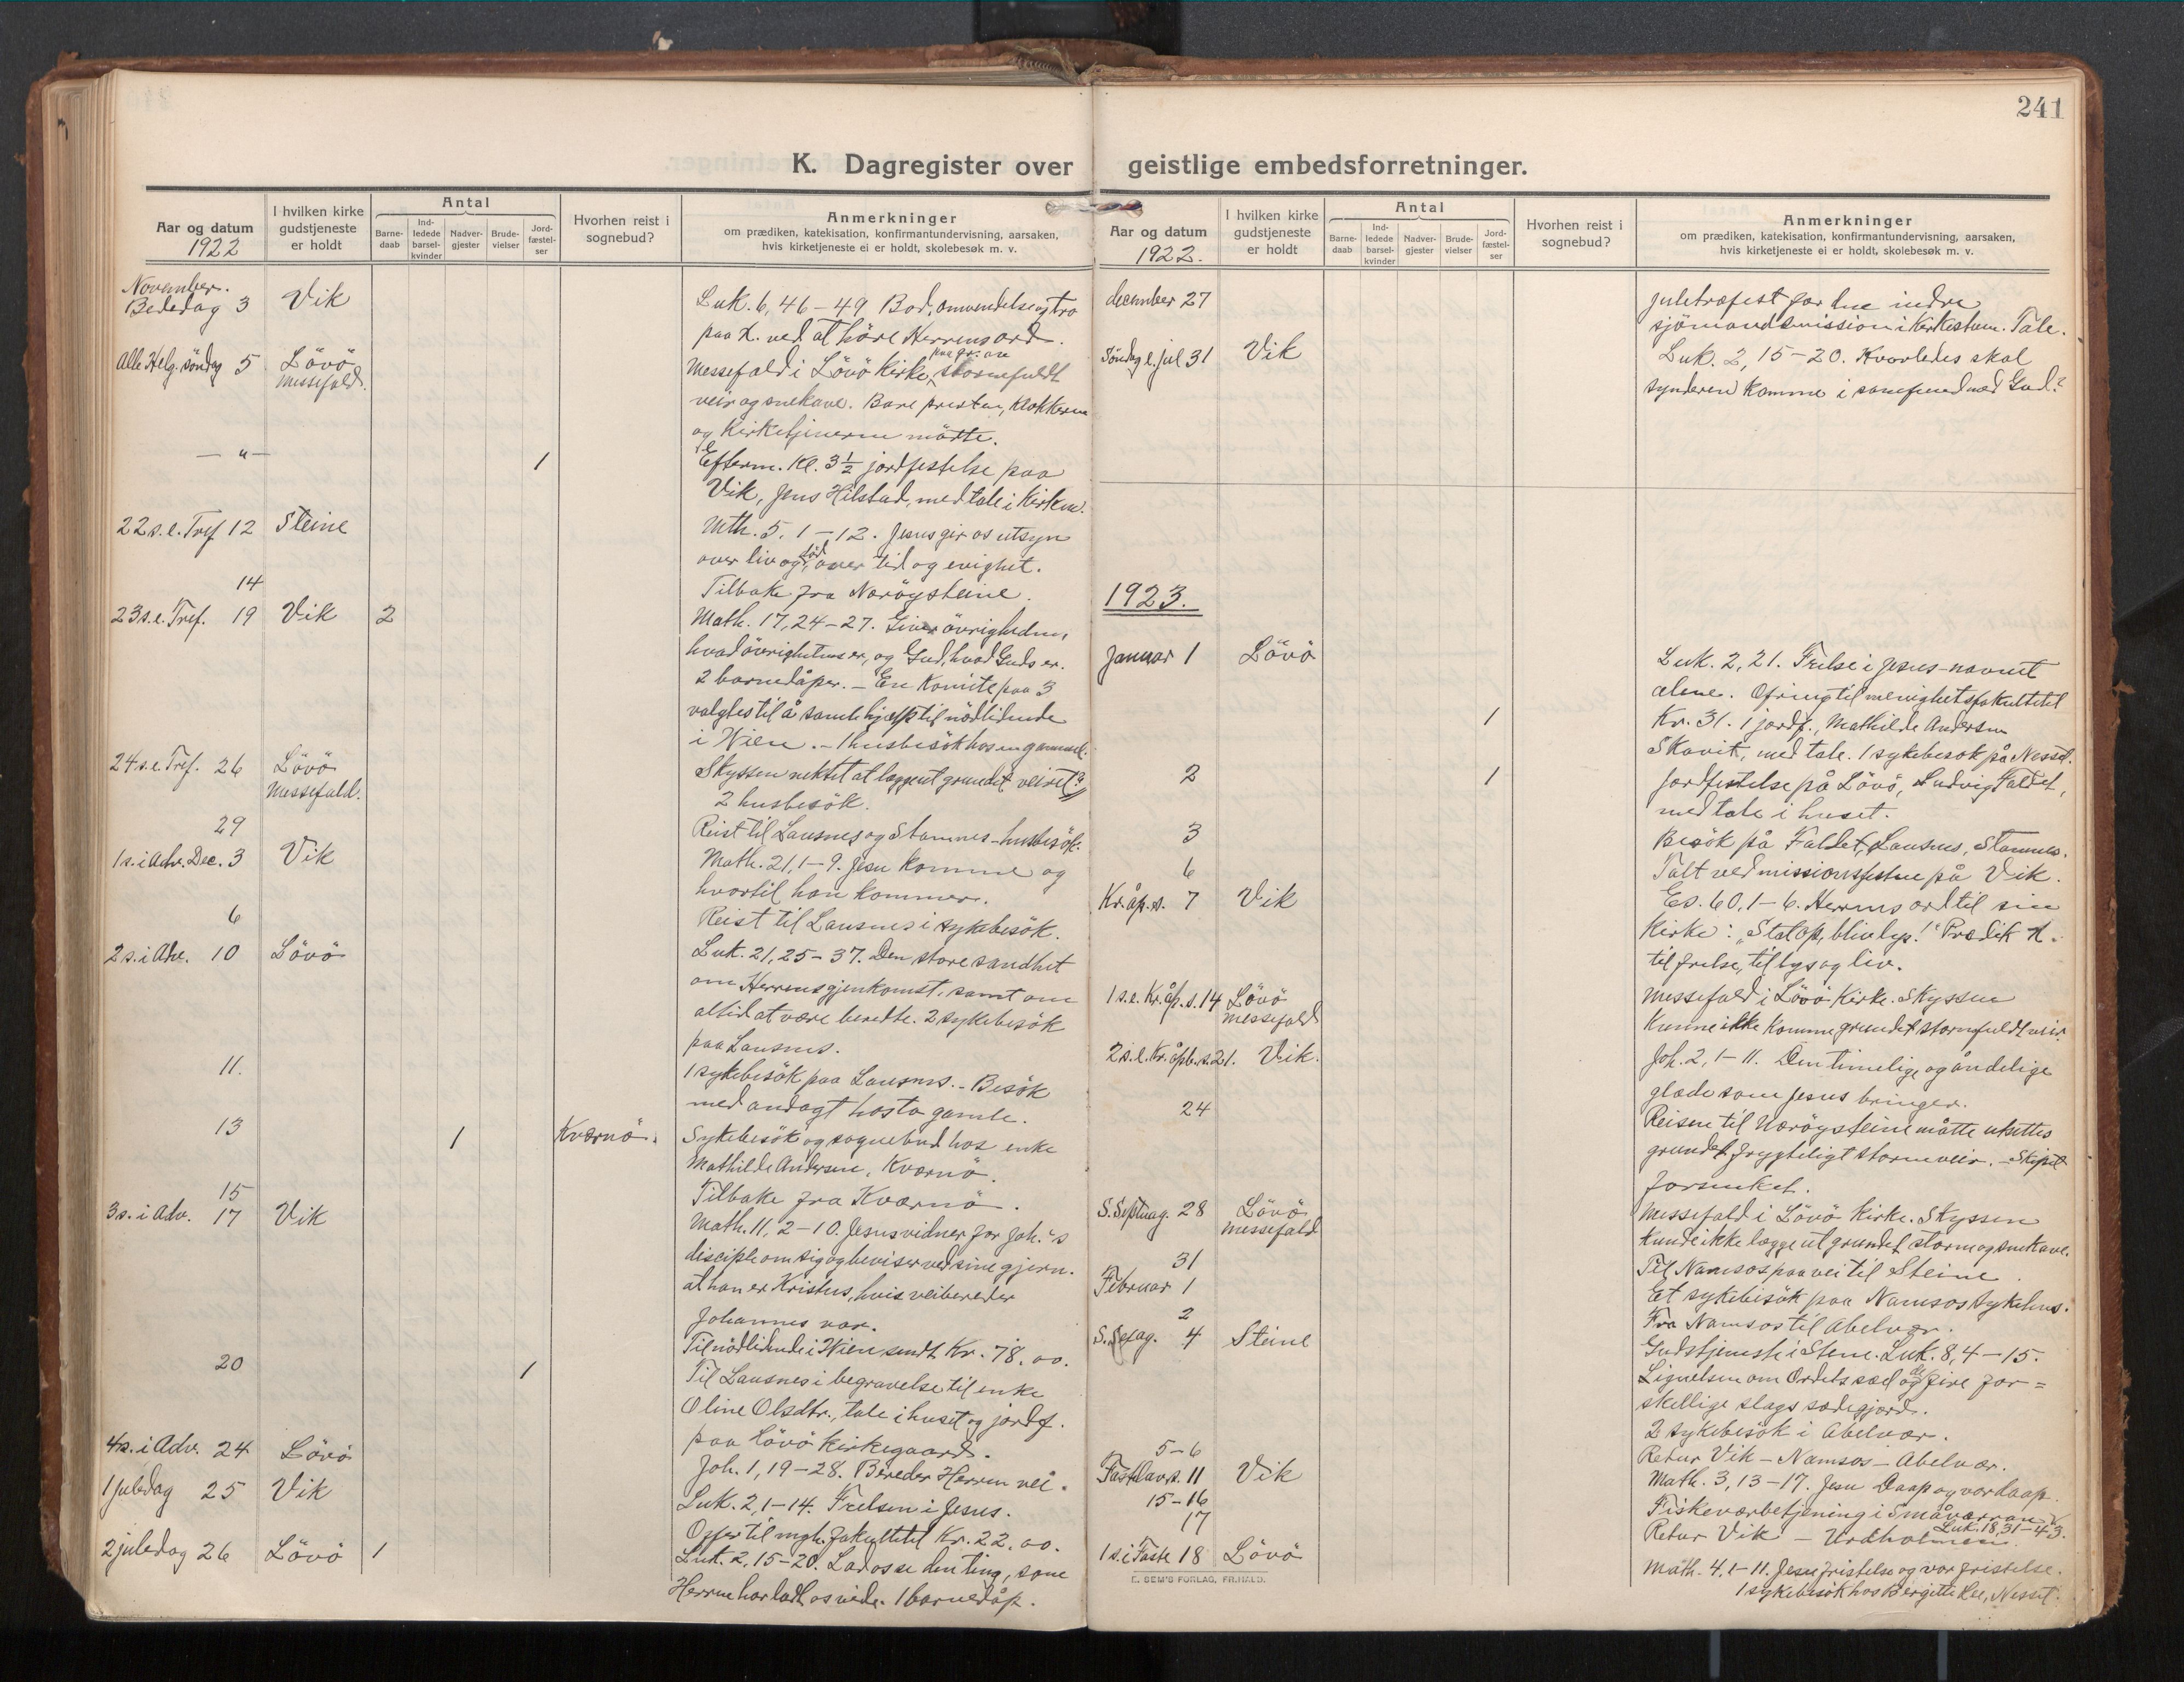 241
K. Dagregister over geistlige embedsforretninger.
Aar og datum
1922
I hvilken kirke gudstjeneste er holdt
Antal
Barne-daab
Ind-ledede barsel-kvinder
Nadver-gjester
Brude-vielser
Jord-fæstel-ser
Hvorhen reist i sognebud?
Anmerkninger
om prædiken, katekisation, konfirmantundervisning, aarsaken,
hvis kirketjeneste ei er holdt, skolebesøk m. v.
November.
Bededag 3 Vik Luk. 6, 46-49 Bod, omvendelse og tro
paa X. ved at høre Herrens ord.
Alle Helg. søndag 5 Lövö Messefald i Lövö Kirke, paa gr. av stormfuldt
messefald. veir og snekave. Bare presten, klokkeren
og Kirketjeneren mötte.
— " — 1 Efterm. Kl. 3 1/2 jordfestelse paa
Vik, Jens Hilstad, med tale i Kirken.
22 s. e. Tref 12 Steine Mth. 5, 1-12. Jesus gir os utsyn
over liv og död, over tid og evighet.
14 Tilbake fra Naröysteine.
23 s. e. Tref. 19 Vik 2 Math. 17, 24-27. Giver övrigheden,
hvad övrighetens er, og Gud, hvad Guds er.
2 barnedåper. - En Komite paa 3
valgtes til å samle hjælp til nödlidende
i Wien. - 1 husbesök hos en gammel.
24 s. e. Tref. 26 Lövö Skyssen nektet at lægge ut grundet veiret?
Messefald. 2 husbesök.
29 Reist til Lausnes og Stamnes - husbesök.
1 s. i Adv. Dec. 3 Vik Math. 21, 1-9. Jesu komme og
hvortil han kommer.
6 Reist til Lausnes i sykebesök.
2 s. i Adv. 10 Lövö Luk. 21, 25-37. Den store sandhet
om Herrens gjenkomst, samt om
altid at være beredte. 2 sykebesök
paa Lausnes.
11. 1 sykebesök paa Lausnes. - Besök
med andagt hos to gamle.
13 1 Kvarnö. Sykebesök og sognebud hos enke
Mathilde Andersen, Kvarnö.
15 Tilbake fra Kvarnö.
3 s. i Adv. 17 Vik Math. 11, 2-10. Jesus vidner for Joh.'s
disciple om sig og beviser ved sine gjern.
at han er Kristus, hvis veibereder
Johannes var.
Til nödlidende i Wien sendt Kr. 78.00.
20 1 Til Lausnes i begravelse til enke
Oline Olsdtr., tale i huset og jordf.
paa Lövö Kirkegaard.
4 s. i Adv. 24 Lövö Joh. 1, 19-28. Bereder Herren vei.
1 juledag 25 Vik Luk. 2, 1-14. Frelsen i Jesus.
Offer til mgh. fakultetet Kr. 22.00.
2 juledag 26 Lövö 1 Luk. 2, 15-20. Lad os se den ting, som
Herren har ladt os vide. 1 barnedåp.
Aar og datum
1922.
I hvilken kirke gudstjeneste er holdt
Antal
Barne-daab
Ind-ledede barsel-kvinder
Nadver-gjester
Brude-vielser
Jord-fæstel-ser
Hvorhen reist i sognebud?
Anmerkninger
om prædiken, katekisation, konfirmantundervisning, aarsaken,
hvis kirketjeneste ei er holdt, skolebesøk m. v.
december 27 Juletræfest for den indre
sjömandsmission i Kirkestuen. Tale.
Söndag e. jul 31 Vik Luk. 2, 15-20. Hvorledes skal
synderen komme i samfund med Gud?
1923.
Januar 1 Lövö Luk. 2, 21. Frelse i Jesus-navnet
alene. Ofring til menighetsfakultetet
1 Kr. 31. 1 jordf., Mathilde Andersen
Skavik, med tale. 1 sykebesök på Nesset.
2 1 Jordfestelse på Lövö, Ludvig Faldet,
med tale i huset.
3 Besök på Faldet, Lausnes, Stamnes.
6 Talt ved missionsfesten på Vik.
Kr. åp. s. 7 Vik Es. 60, 1-6. Herrens ord til sin
Kirke: "Stat op, bliv lys!" Prædik X.
til frelse, til lys og liv.
1 s. e. Kr. åp. s. 14 Lövö Messefald i Lövö Kirke. Skyssen
messefald kunne ikke komme grundet stormfuldt veir.
2 s. e. Kr. åpb. s. 21. Vik. Joh. 2, 1-11. Den timelige og åndelige
glæde som Jesus bringer.
24 Reisen til Naröysteine måtte utsettes
grundet frygteligt stormveir. - Skipet
forsinket.
S. Septuag. 28 Lövö Messefald i Lövö Kirke. Skyssen
messefald kunde ikke lægge ut grundet storm og snekave.
31 Til Namsos paa vei til Steine.
Februar 1 Et sykebesök paa Namsos sykehus.
2 Fra Namsos til Abelvær.
S. Sexag. 4 Steine Gudstjeneste i Steine. Luk. 8, 4-15.
Lignelsen om Ordets sæd og de fire for=
skellige slags sædegjord.
2 sykebesök i Abelvær.
5-6 Retur Vik - Namsos - Abelvær.
Fastelavns. 11 Vik Math. 3, 13-17. Jesu Daap og vor daap.
15-16 Fiskeværbetjening i Småværran
17 Retur Vik - Urdholmen. Luk. 18, 31-43.
1 s. i Faste 18 Lövö Math. 4, 1-11. Jesu fristelse og vor fristelse.
1 sykebesök hos Bergitte Lee, Nesset.
E. SEM'S FORLAG, FR.HALD.